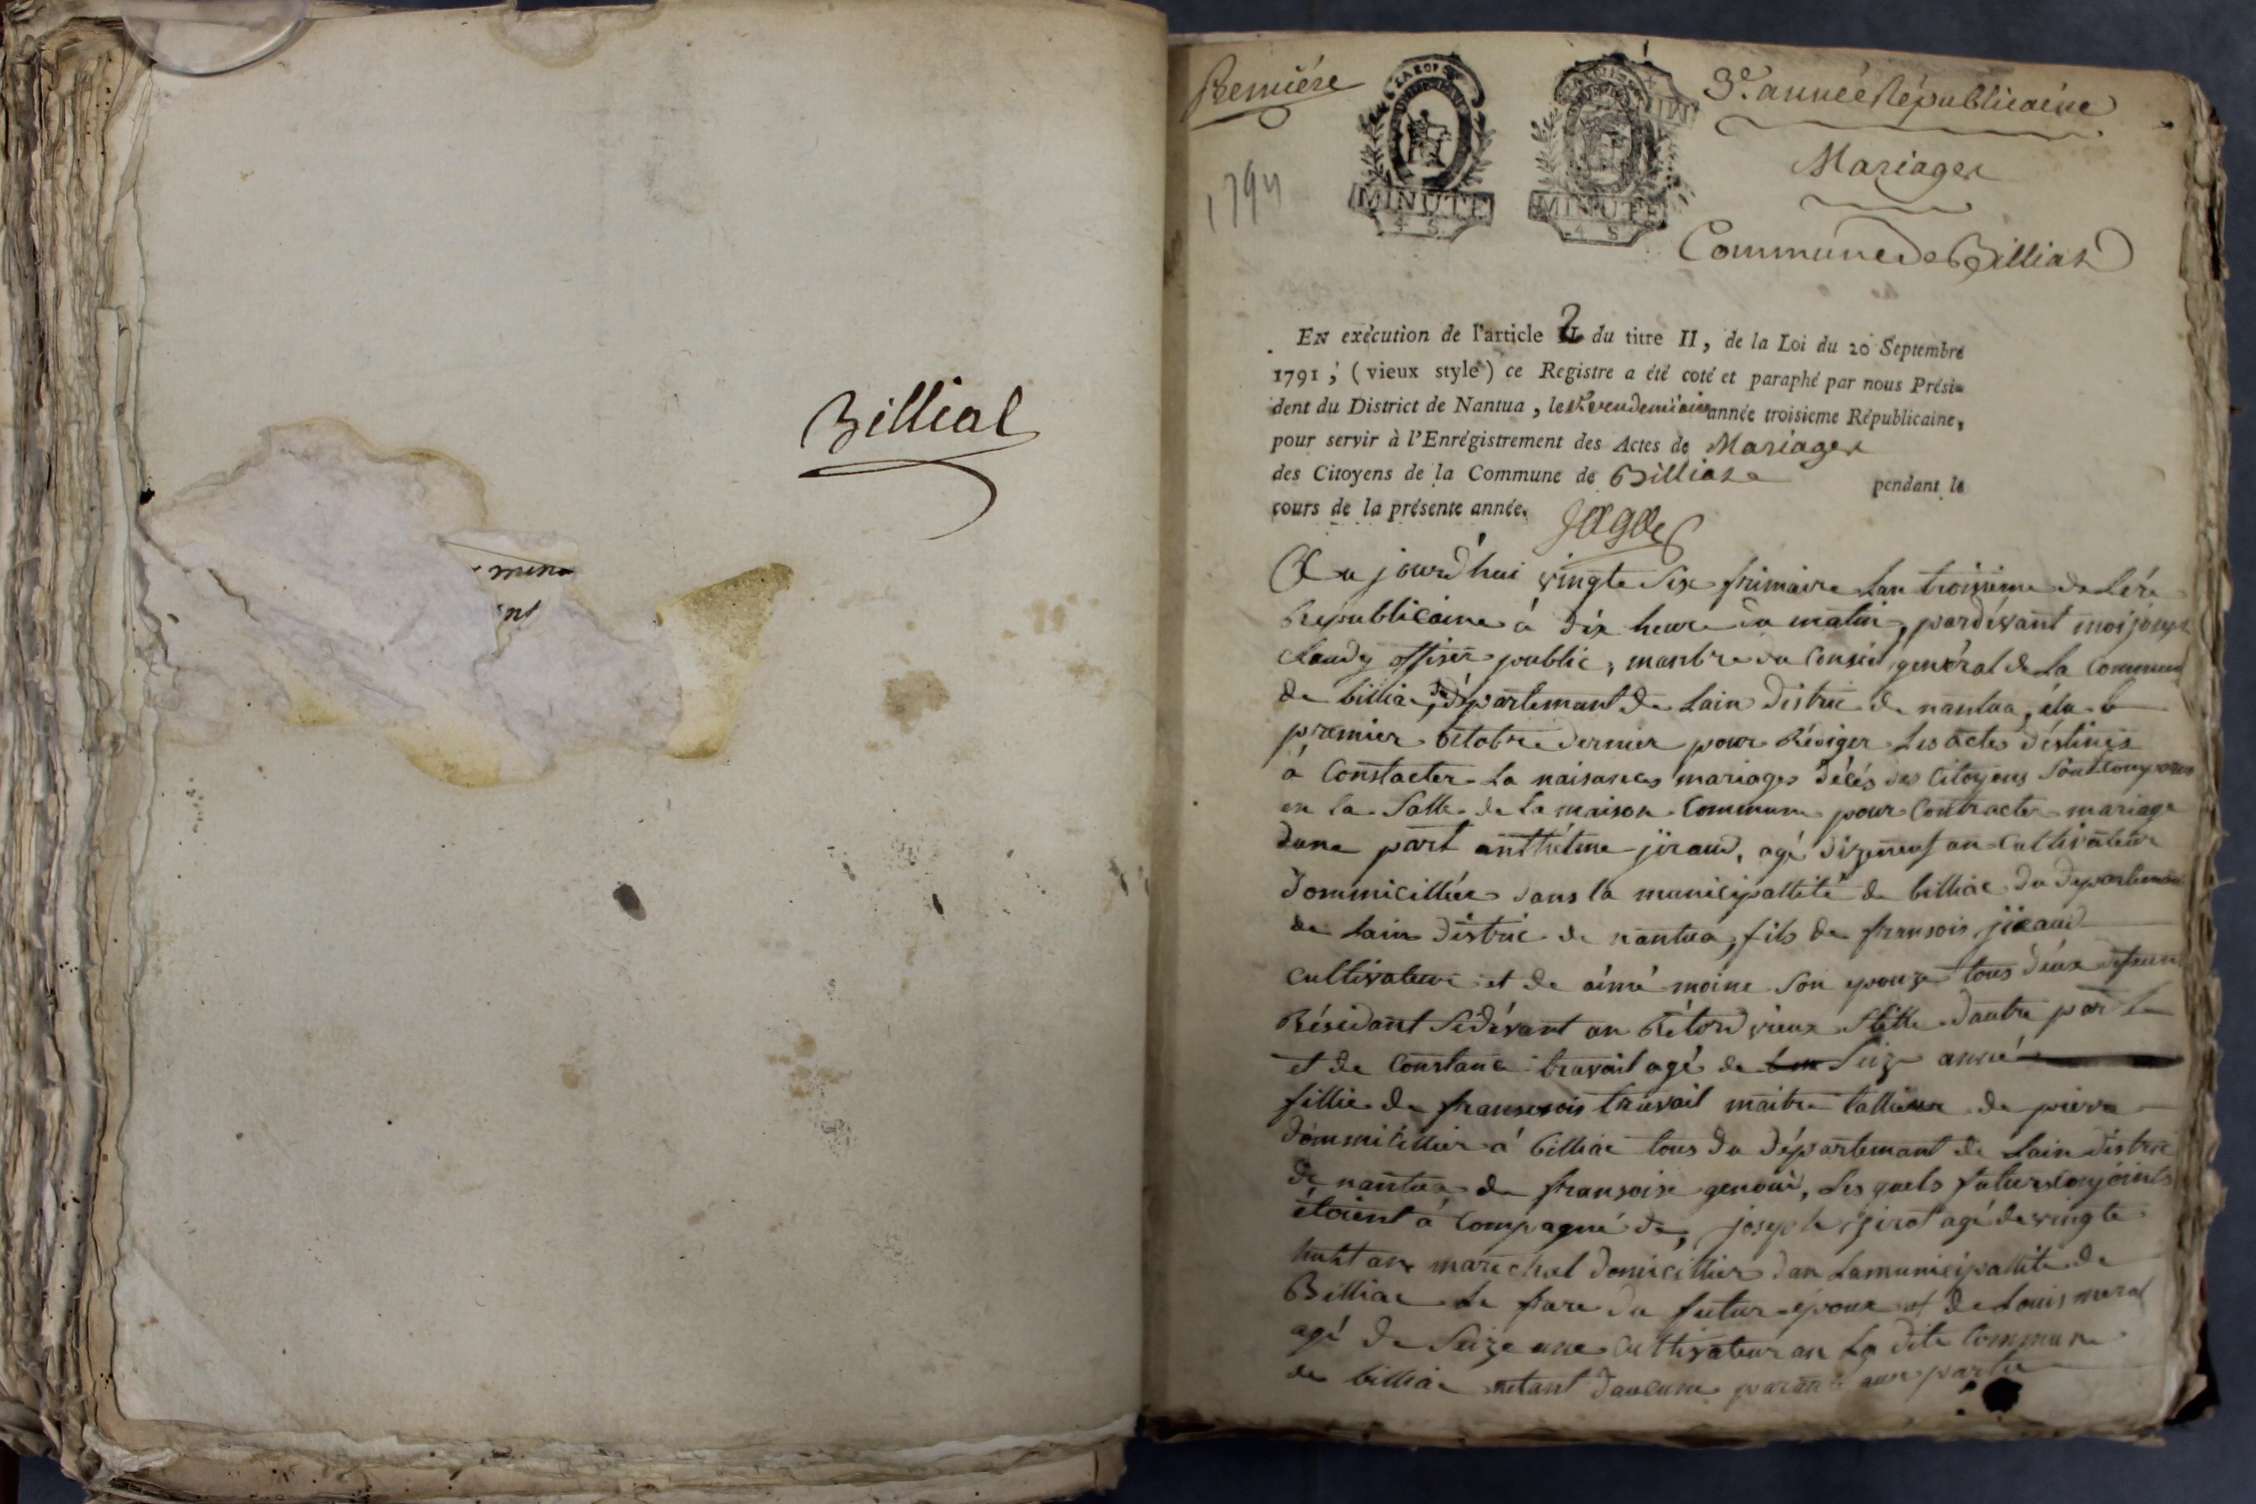 Billiat
Premiére
3e. année Républicaine
1794
MINUTE
4 S
MINUTE
4 S
Mariages
Commune de Billiat
EN exècution de l'article 2 du titre II, de la Loi du 20 Septembre
1791; (vieux style) ce Registre a été coté et paraphé par nous Prési-
dent du District de Nantua, le vendemiaire année troisieme Républicaine,
pour servir à l'Enrégistrement des Actes de Mariages
des Citoyens de la Commune de Billiat pendant le
cours de la présente année.
Aujourd'hui vingte six frimaire lan troisieme de Lére
Républicaine à dix heure du matin, pardévant moi joseph
officier public, manbre du Conseil général de la Commune
de billiac, du départemant de Lain distric de nantua, élu le
premier octobre dernier pour Rédiger Les actes déstinés
à Constacter la naisances mariages décés des Citoyens Sont Comparus
en la Salle de la maison Commune pour Contracter mariage
dune part anthélme jiraud, agé dizeneuf an Cultivateur
dommicilliée dans la municipallité de billiac du departemant
de Lain distric de nantua, fils de fransois jiraud
Cultivateur et de aimé moine Son epouze tous déux defeun
Résidant Sidévant an Rétord vieux Stille dautre part
et de Constance travail agé de Seize année
fillie de fransois travail maitre tallieur de pierre
dommicillier à billiac tous du départemant de Lain distric
de nantua de fransoise genoud, Les quels futurs Conjoints
étoient à Compagné de, joseph jirot agé de vingte
huit an marechal domicillier dan Lamunicipallité de
Billiac Le frare du futur époux et de Louis meral
agé de Seize ane Cultivateur an La dite Commune
de billiac netant daucune parante aux partie